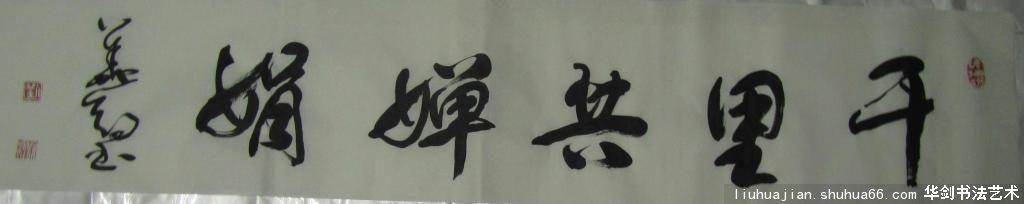 千里共婵娟
华剑书
liuhuajian.shuhua66.com 华剑书法艺术